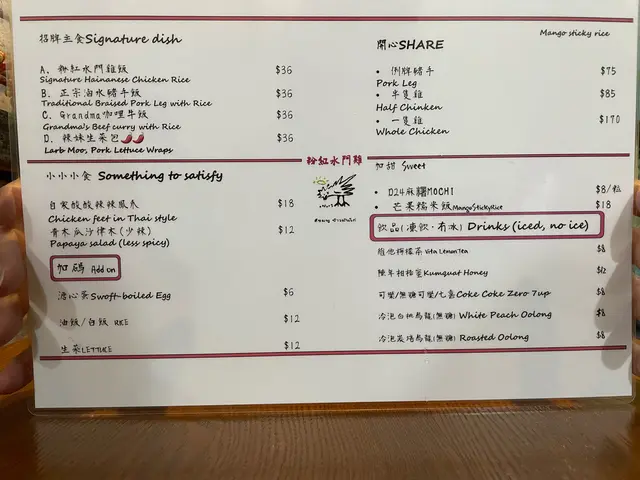 招牌主食Signature dish
A. 粉紅水門雞飯 $36
Signature Hainanese Chicken Rice
B. 正宗滷水豬手飯 $36
Traditional Braised Pork Leg with Rice
C. Grandma咖哩牛飯 $36
Grandma's Beef curry with Rice
D. 辣妹生菜包🌶🌶 $36
Larb Moo, Pork Lettuce Wraps
小小小食 Something to satisfy
自家酸酸辣辣鳳爪 $18
Chicken feet in Thai style
青木瓜沙律木(少辣) $12
Papaya salad (less spicy)
加碼 Add on
溏心蛋Swoft-boiled Egg $6
油飯/白飯 RICE $12
生菜LETTUCE $12
粉紅水門雞
Mango sticky rice
開心SHARE
• 例牌豬手 $75
Pork Leg
• 半隻雞 $85
Half Chinken
• 一隻雞 $170
Whole Chicken
加甜 Sweet
• D24麻糬MOCHI $8/粒
• 芒果糯米飯MangoStickyRice $18
飲品(凍飲·冇冰) Drinks (iced, no ice)
維他檸檬茶 Vita LemonTea $8
陳年柑桔蜜 Kumquat Honey $12
可樂/無糖可樂/七喜Coke Coke Zero 7up $8
冷泡白桃烏龍(無糖) White Peach Oolong $8
冷泡炭培烏龍(無糖) Roasted Oolong $8